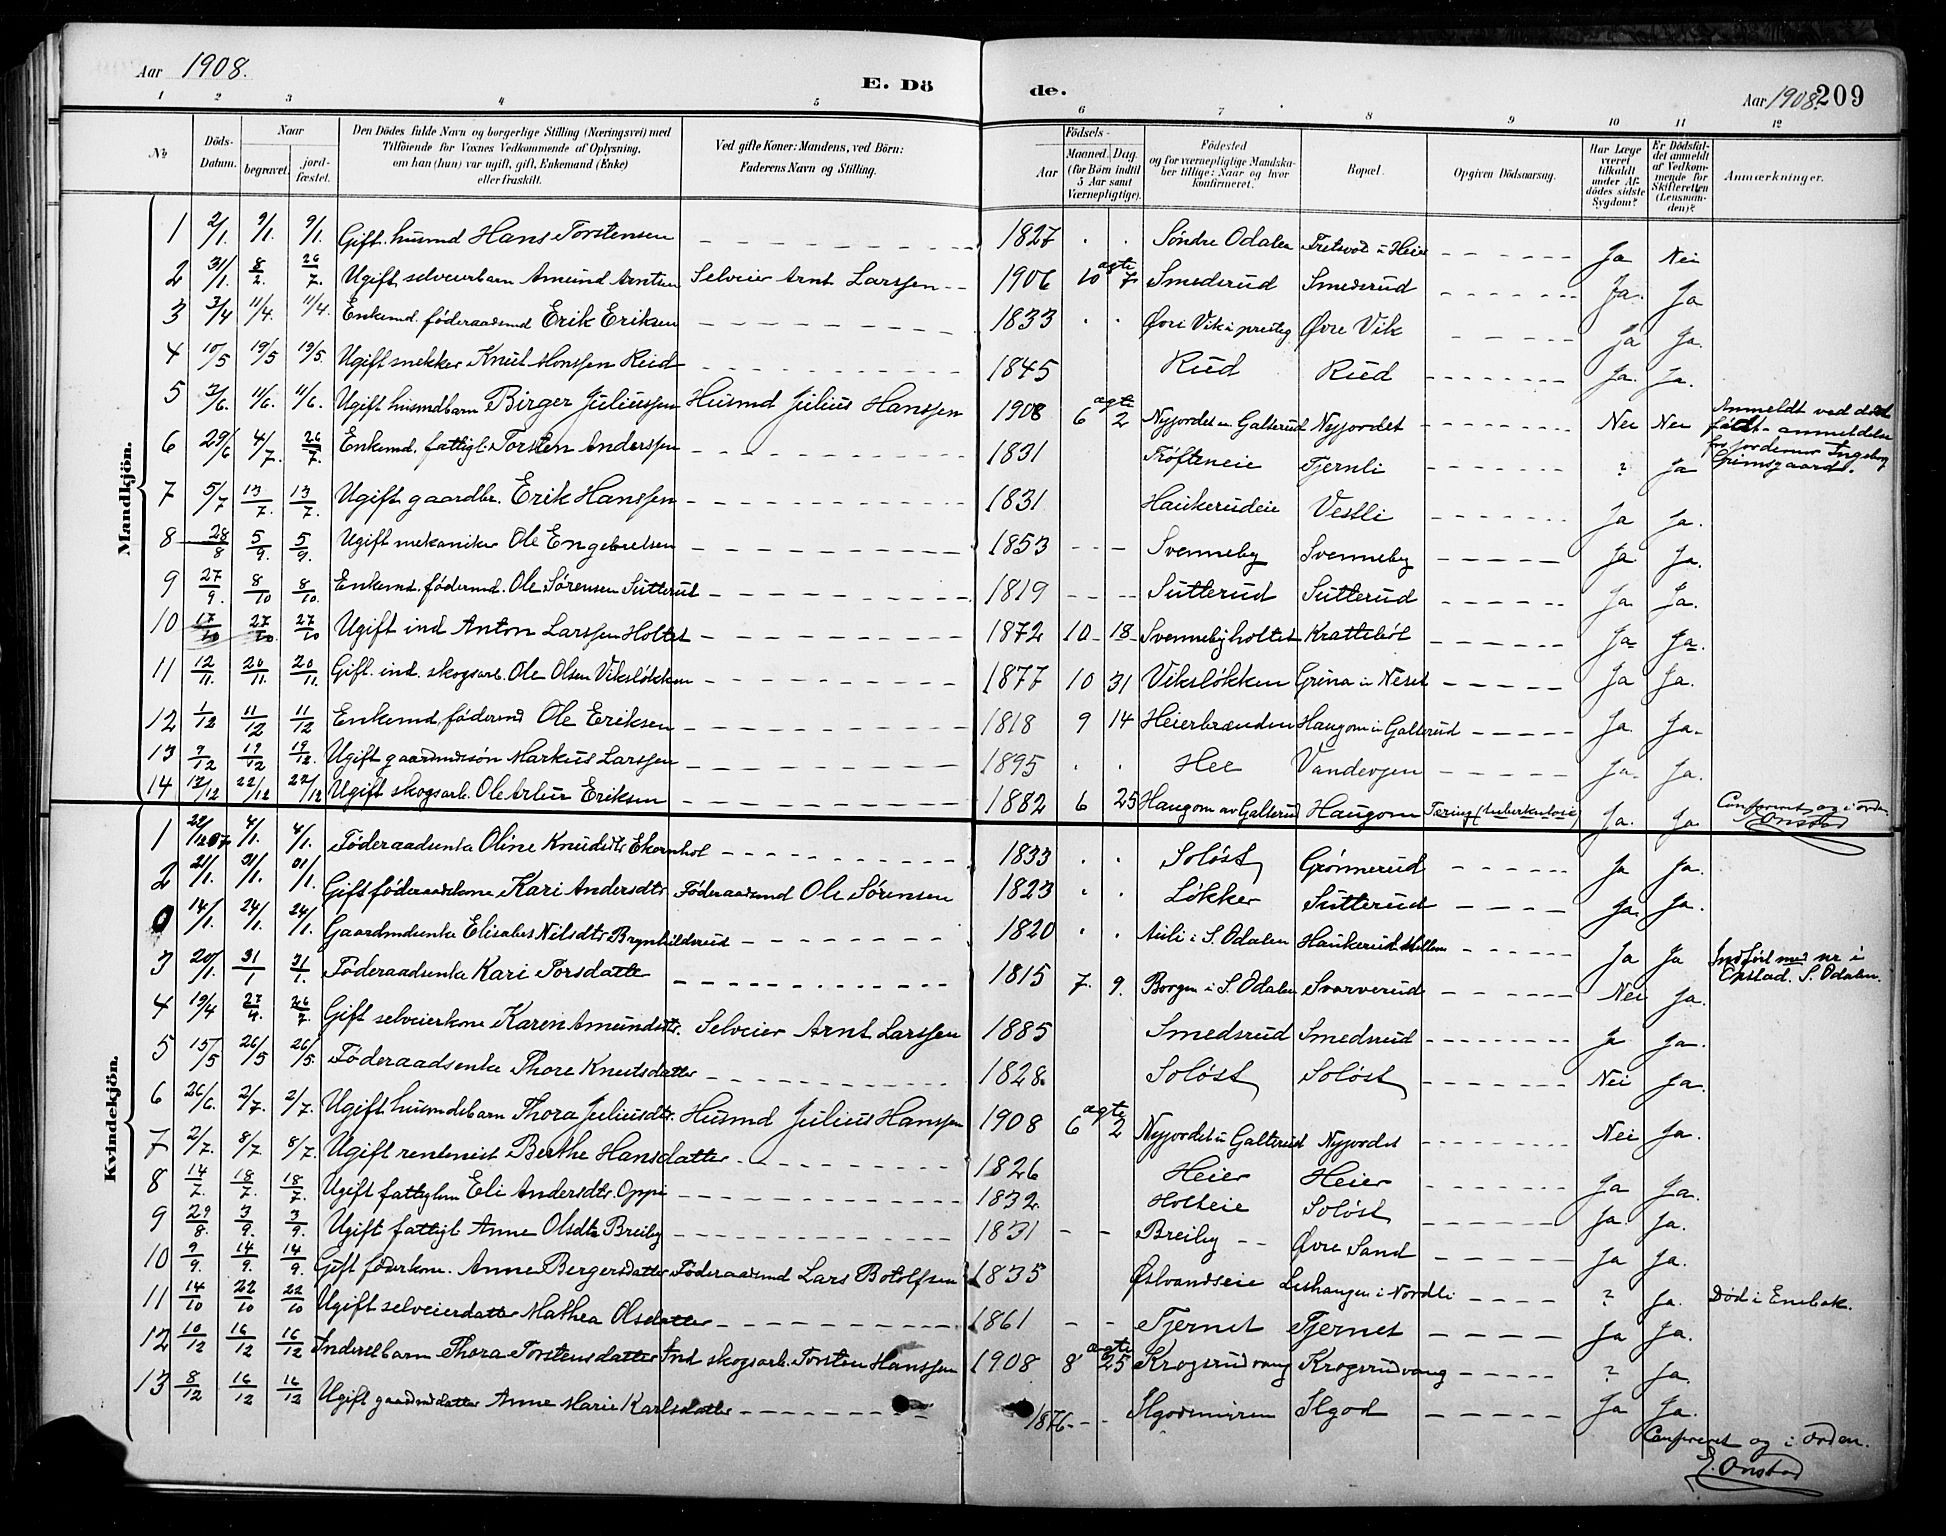 Aar 1908.
E. Dö
de.
Aar 1908. 209
1 2 3 4 5 6 7 8 9 10 11 12
No
Döds-Datum.
Naar
begravet.
jord-fæstet.
Den Dödes fulde Navn og borgerlige Stilling (Næringsvei) med
Tilföiende for Voxnes Vedkommende af Oplysning,
om han (hun) var ugift, gift, Enkemand (Enke)
eller fraskilt.
Ved gifte Koner: Mandens, ved Börn:
Faderens Navn og Stilling.
Födsels-
Aar
Maaned. Dag.
(for Börn indtil
5 Aar samt
Værnepligtige).
Födested
og for værnepligtige Mandska-
ber tillige: Naar og hvor
konfirmeret.
Bopæl.
Opgiven Dödsaarsag.
Har Læge
været
tilkaldt
under Af-
dödes sidste
Sygdom?
Er Dödsfal-
det anmeldt
af Vedkom-
mende for
Skifteretten
(Lensman-
den)?
Anmærkninger.
Mandkjön.
1 2/1. 9/1. 9/1. Gift husmd Hans Torstensen 1827 Söndre Odalen Tretsvod u Heier Ja Nei
2 31/1. 8/2. 26/7. Ugift selveierbarn Amund Arntsen Selveier Arnt Larssen 1906 10 agte 7 Smederud Smederud Ja. Ja
3 3/4 11/4. 11/4. Enkemd. föderaadsmd Erik Eriksen 1833 Övre Vik i prestg Övre Vik Ja Ja.
4 10/5 19/5 19/5. Ugift snekker Knut Monssen Rud 1845 Rud Rud Ja. Ja.
5 3/6. 11/6. 11/6. Ugift husmdbarn Birger Juliussen Husmd Julius Hanssen 1908 6 agte 2 Nyjordet u. Galterud Nyjordet Nei Nei Anmeldt ved död
födt-anmeldelse
fra jordemor Ingeborg
Grimsgaard.
6 29/6 4/7. 26/7. Enkemd. fattigl. Torsten Anderssen 1831 Tröfteneie Tjernli ? Ja
7 5/7 13/7. 13/7. Ugift gaardbr. Erik Hanssen 1831 Haukerudeie Vestli Ja Ja.
8 28/8 5/9. 5/9. Ugift mekaniker Ole Engebretsen 1853 Svenneby Svenneby Ja Ja.
9 27/9. 8/10 8/10. Enkemd. födermd. Ole Sörensen Sutterud 1819 Sutterud Sutterud Ja Ja.
10 17/10 27/10. 27/10 Ugift ind Anton Larssen Holtet 1872 10 18 Svennebyholtet Kratteböl Ja Ja.
11 12/11. 20/11. 20/11. Gift. ind. skogsarb. Ole Olsen Vikslökken 1877 10 31 Vikslökken Grina u Neset Ja Ja.
12 1/12 11/12 11/12 Enkemd. födermd Ole Eriksen 1818 9 14 Heierbrænden Haugom u Galterud Ja Ja.
13 9/12 19/12 19/12. Ugift gaardmdssön Markus Larssen 1895 Hee Vandevjen Ja. Ja.
14 12/12 22/12 22/12 Ugift skogsarb. Ole Artur Eriksen 1882 6 25 Haugom av Galterud Haugom Tæring (tuberkulose) Ja. Ja Confereret og i orden
E. Onstad
Kvindekjön.
1 22/12 07 4/1. 4/1. Föderaadsenke Oline Knudsdtr Ekornhol 1833 Solöst Grönnerud Ja Ja.
2 21/1. 31/1. 31/1. Gift föderaadskone Kari Andersdtr. Föderaadsmd Ole Sörensen 1823 Lökker Sutterud Ja. Ja.
0 14/1. 24/1. 24/1. Gaardmdsenke Elisabet Nilsdtr Brynhildsrud 1820 Auli i S. Odalen Haukerud Ja Ja Indfört med nr i
Opstad. S. Odalen.
3 20/1. 31/1 31/1. Föderaadsenke Kari Torsdatter 1815 7. 9. Borgen i S. Odalen Svarverud Nei Ja.
4 19/4 27/4. 26/7 Gift selveierkone Karen Amundsdtr. Selveier Arnt Larssen 1885 Smedsrud Smedsrud Ja Ja.
5 15/5 26/5 26/5 Föderaadsenke Thore Knutsdatter 1828. Solöst Solöst Nei Ja.
6 26/6. 2/7. 2/7. Ugift husmdsbarn Thora Juliusdtr. Husmd Julius Hanssen 1908 6 agte 2 Nyjordet u Galterud Nyjordet Nei Ja.
7 2/7. 8/7 8/7. Ugift rentenist Berthe Hansdatter 1826 Heier Heier Ja Ja.
8 14/7. 18/7. 18/7. Ugift fattiglem Eli Andersdtr. Oppi 1832 Holteie Solöst Ja. Ja.
9 29/8. 3/9. 3/9. Ugift fattigl. Anne Olsdtr Breiby 1831 Breiby Övre Sand Ja Ja.
10 9/9. 14/9. 14/9. Gift föderkone. Anne Bergersdatter Föderaadsmd Lars Botolfsen 1835 Östvandseie Leshaugen i Nordli ? Ja.
11 14/10 22/10 22/10 Ugift selveierdatter Mathea Olsdatter 1861 Tjernet Tjernet Ja Ja. Död i Enebak.
12 10/12 16/12 16/12 Inderstbarn Thora Torstensdatter Ind skogsarb. Torsten Hanssen 1908 8 agte 25 Krogsrudvang Krogsrudvang ? Ja.
13 8/12 16/12 16/12 Ugift gaardmdsdatter Anne Marie Karlsdatter 1876 Ilgodsmyren Ilgod Ja Ja.
Confereret og i orden.
E. Onstad